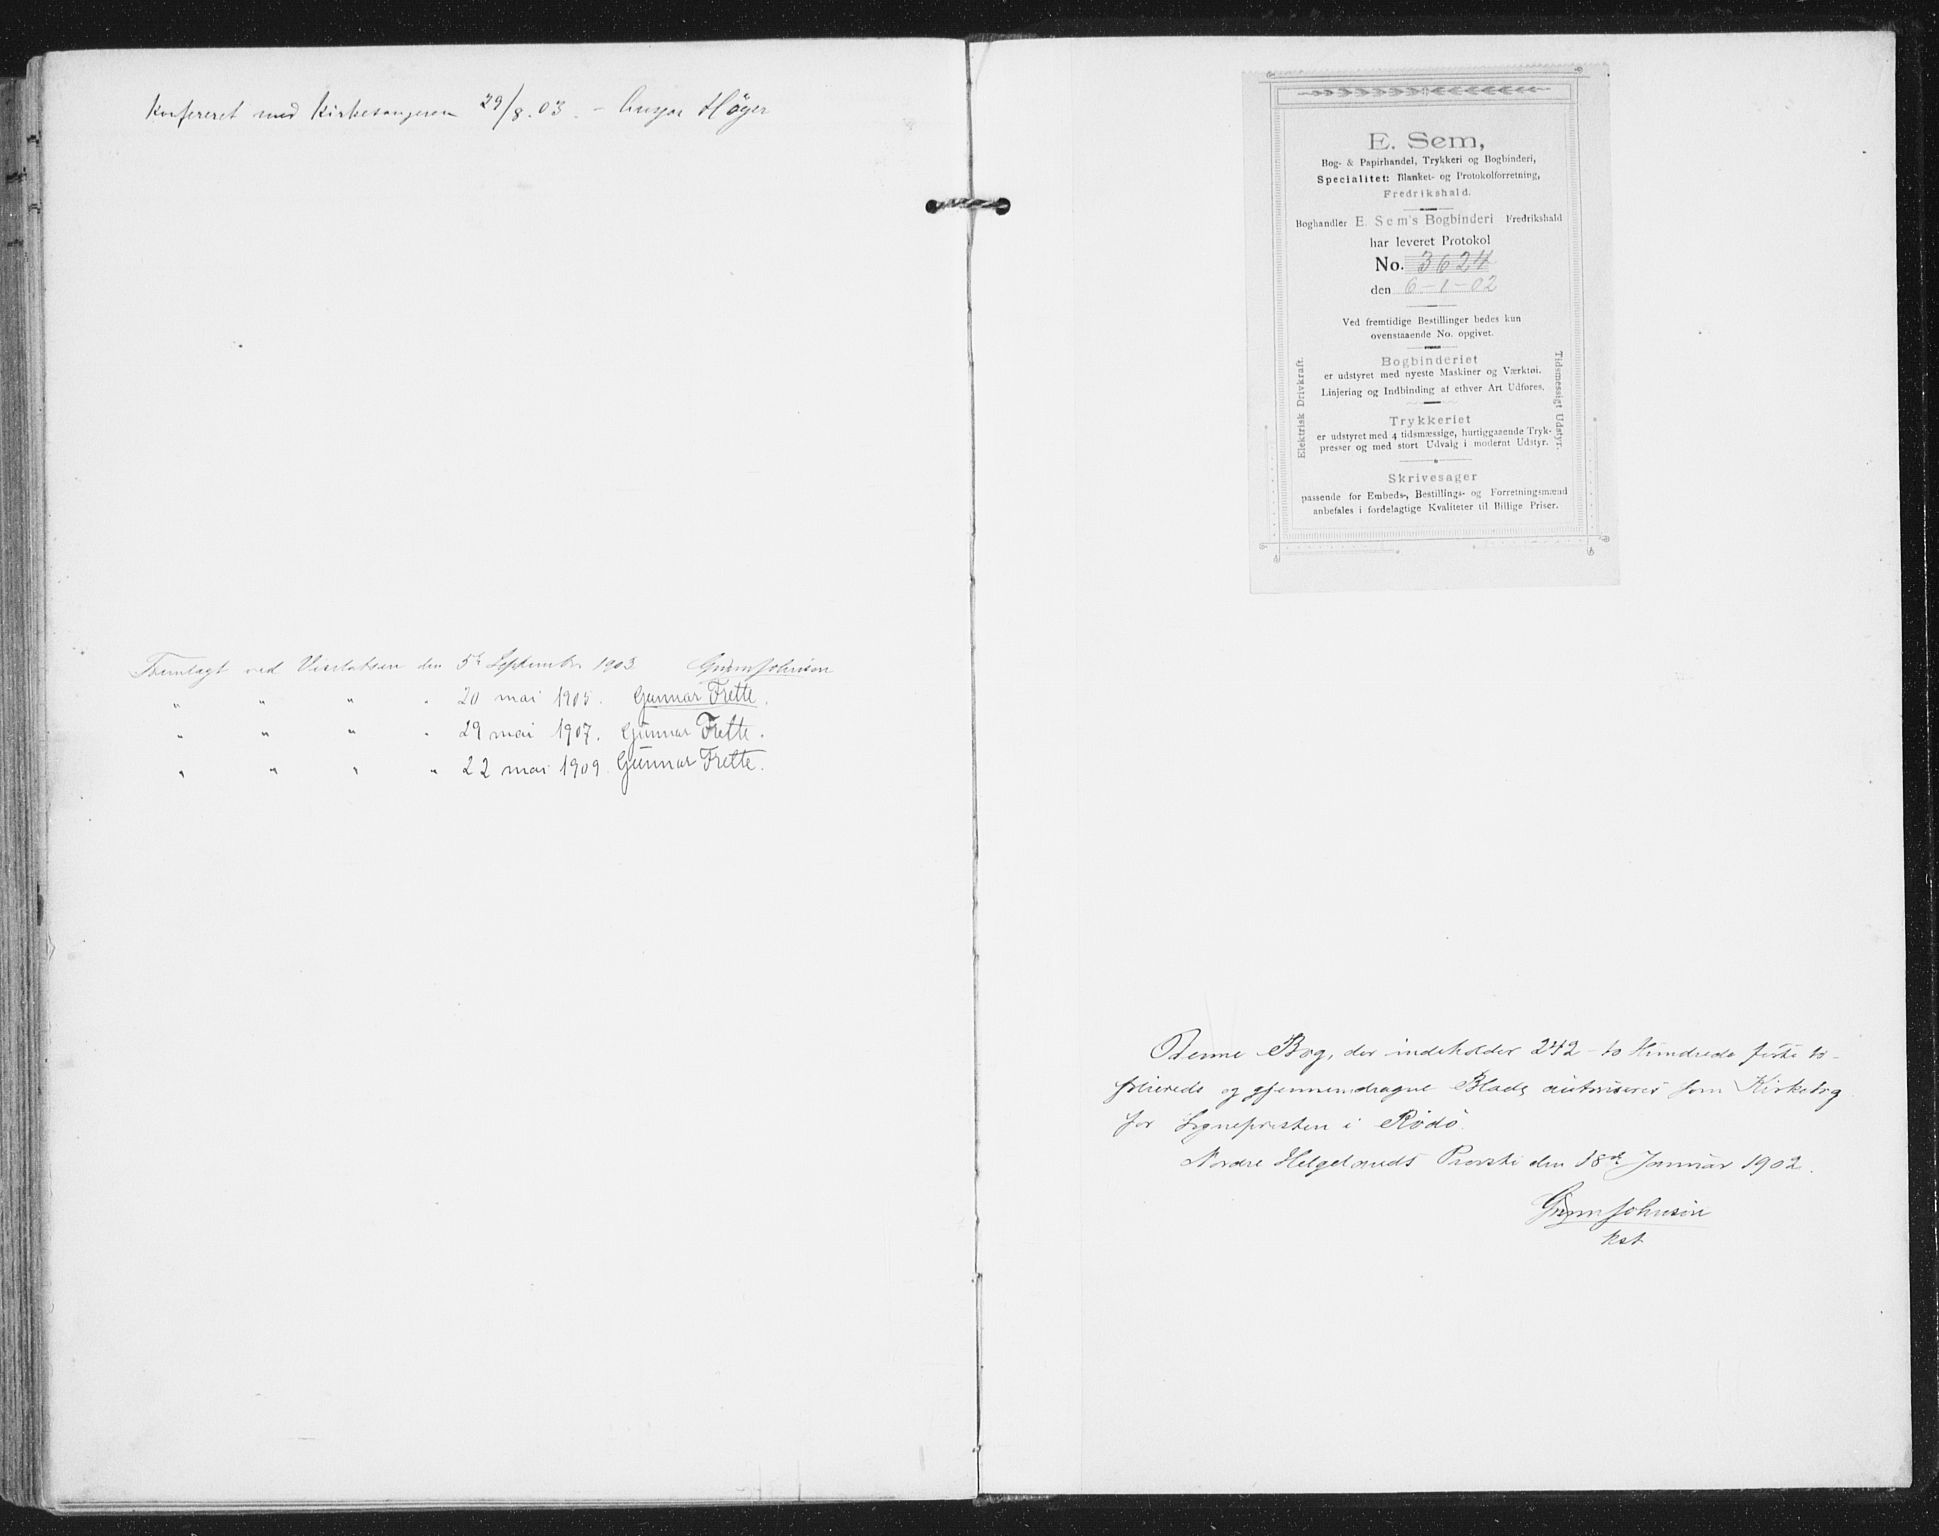 Konfereret med Kirkesangeren 29/8.03. – Høyer
Fremlagt ved Visitatsen den 5te September 1903 Grønn Johnson
" " " " 20 mai 1905. Gunnar Frette.
" " " " 29 mai 1907. Gunnar Frette.
" " " " 22 mai 1909. Gunnar Frette.
E. Sem,
Bog- & Papirhandel, Trykkeri og Bogbinderi,
Specialitet: Blanket- og Protokolforretning,
Fredrikshald.
Boghandler E. Sem's Bogbinderi Fredrikshald
har leveret Protokol
No. 3624
den 6-1-02
Ved fremtidige Bestillinger bedes kun
ovenstaaende No. opgivet.
Bogbinderiet
er udstyret med nyeste Maskiner og Værktøi.
Linjering og Indbinding af ethver Art Udføres.
Trykkeriet
er udstyret med 4 tidsmæssige, hurtiggaaende Tryk-
presser og med stort Udvalg i modernt Udstyr.
Skrivesager
passende for Embeds-, Bestillings- og Forretningsmænd
anbefales i fordelagtige Kvaliteter til Billige Priser.
Elektrisk Drivkraft.
Tidsmessigt Udstyr.
Denne Bog, der indeholder 242 – to Hundrede firti to –
folierede og gjennemdragne Blade autoriseres som Kirkebog
for Sognepresten i Rödö.
Nordre Helgelands Provsti den 18de Januar 1902.
Johnson
kst